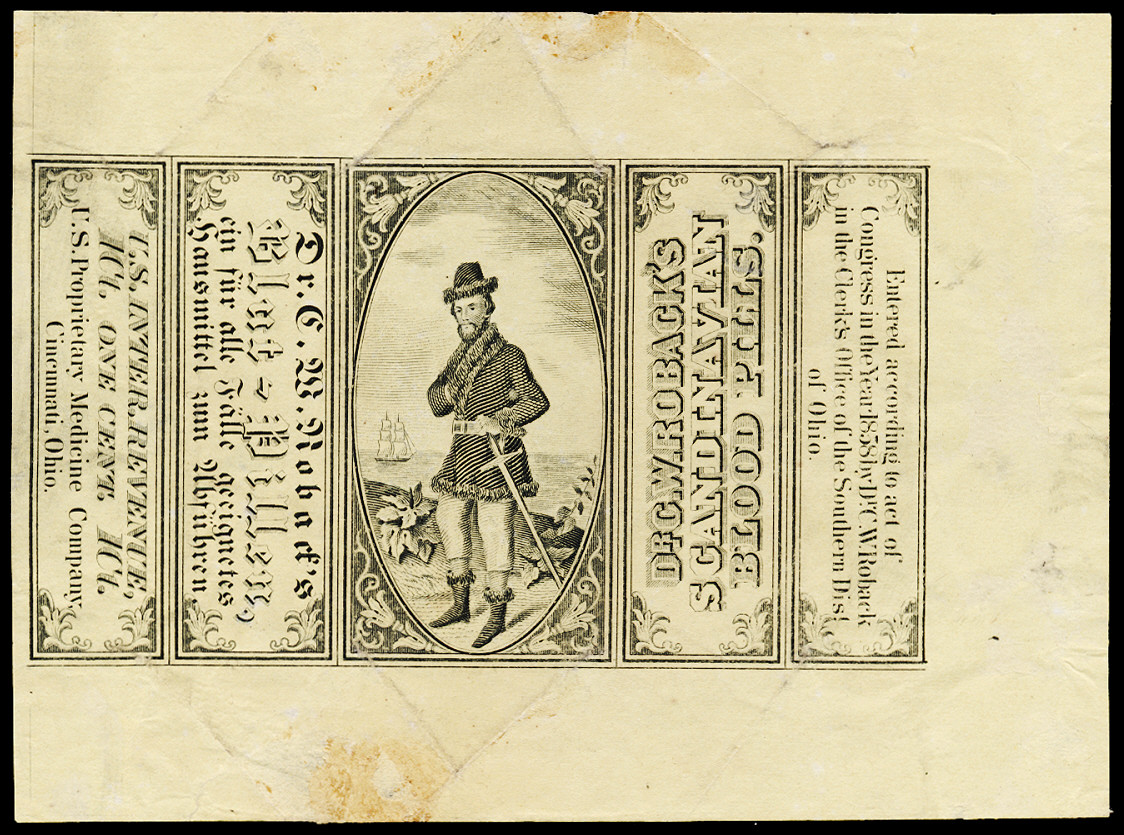 U.S. INTER. REVENUE,
1Ct. ONE CENT. 1Ct.
U.S. Proprietary Medicine Company,
Cincinnati, Ohio.
Dr. C. W. Roback's
Blut-Pillen,
ein für alle Fälle geeignetes
Hausmittel zum Abführen
DR. C.W. ROBACK'S
SCANDINAVIAN
BLOOD PILLS.
Entered according to act of
Congress in the Year 1858 by Dr. C.W. Roback
in the Clerk's Office of the Southern Dist
of Ohio.